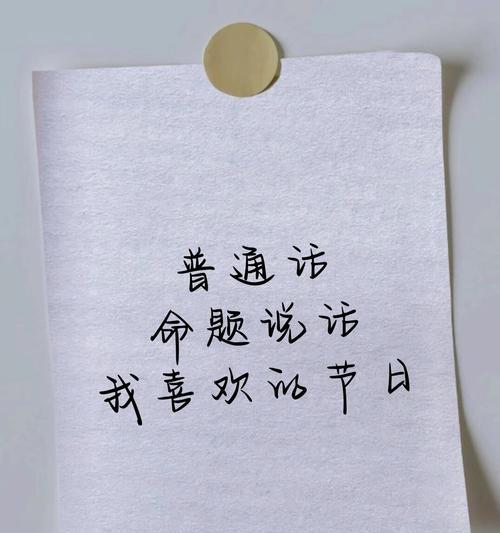 普通话
命题说话
我喜欢的节日